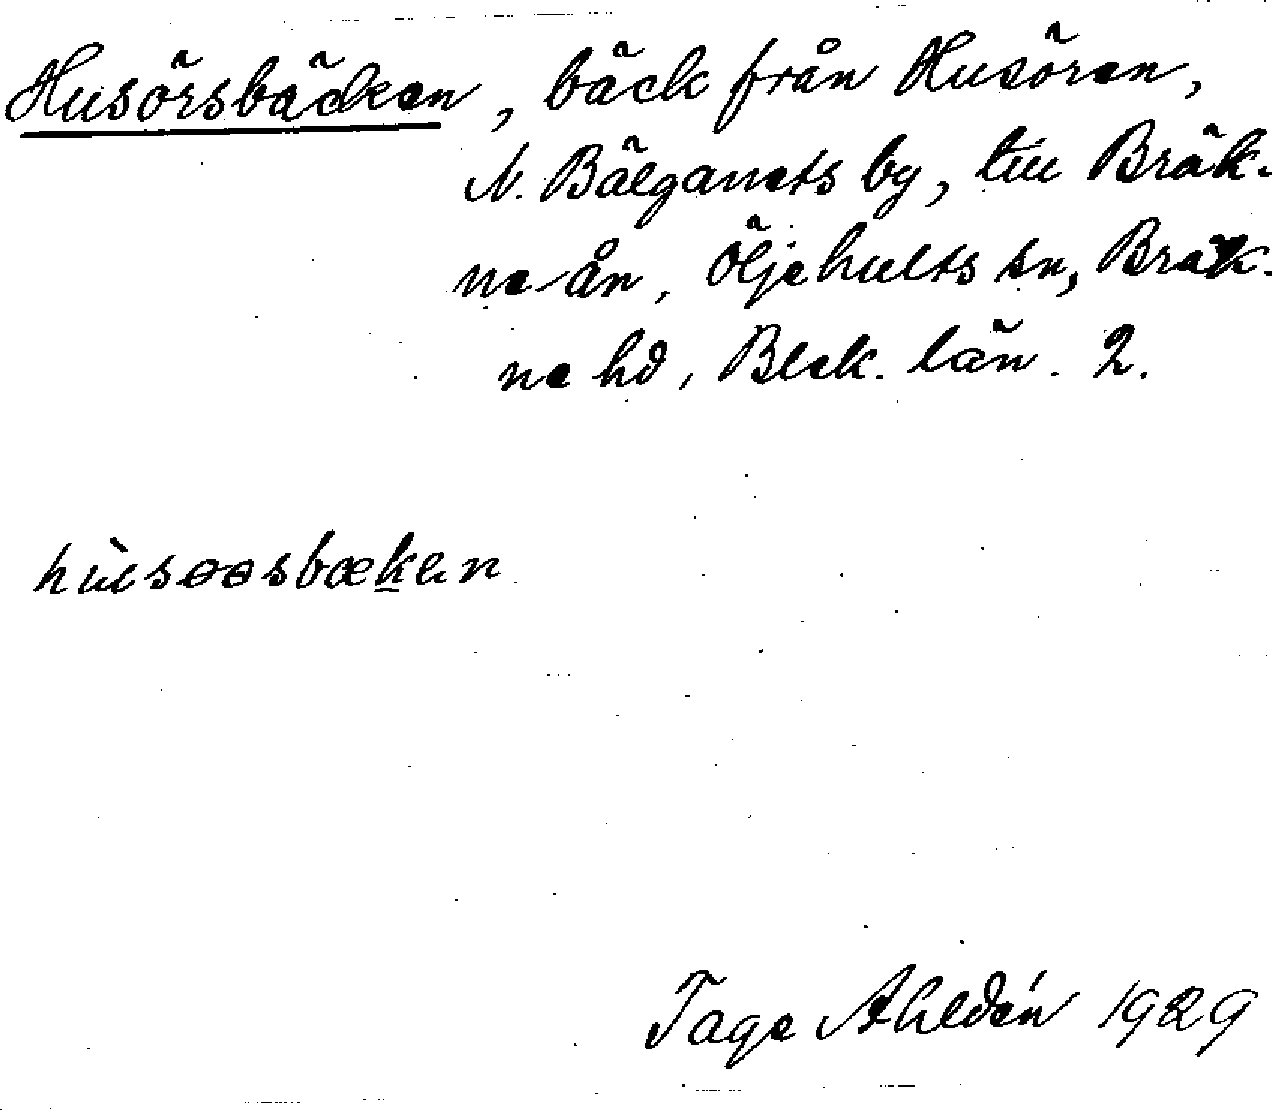 Husörsbäcken, bäck från Husören,
N. Bälganets by, till Bräk-
ne-ån, Öljehults sn, Bräk-
ne hd, Blek. län. 2.
hùsøøsbækan
Tage Ahldén 1929